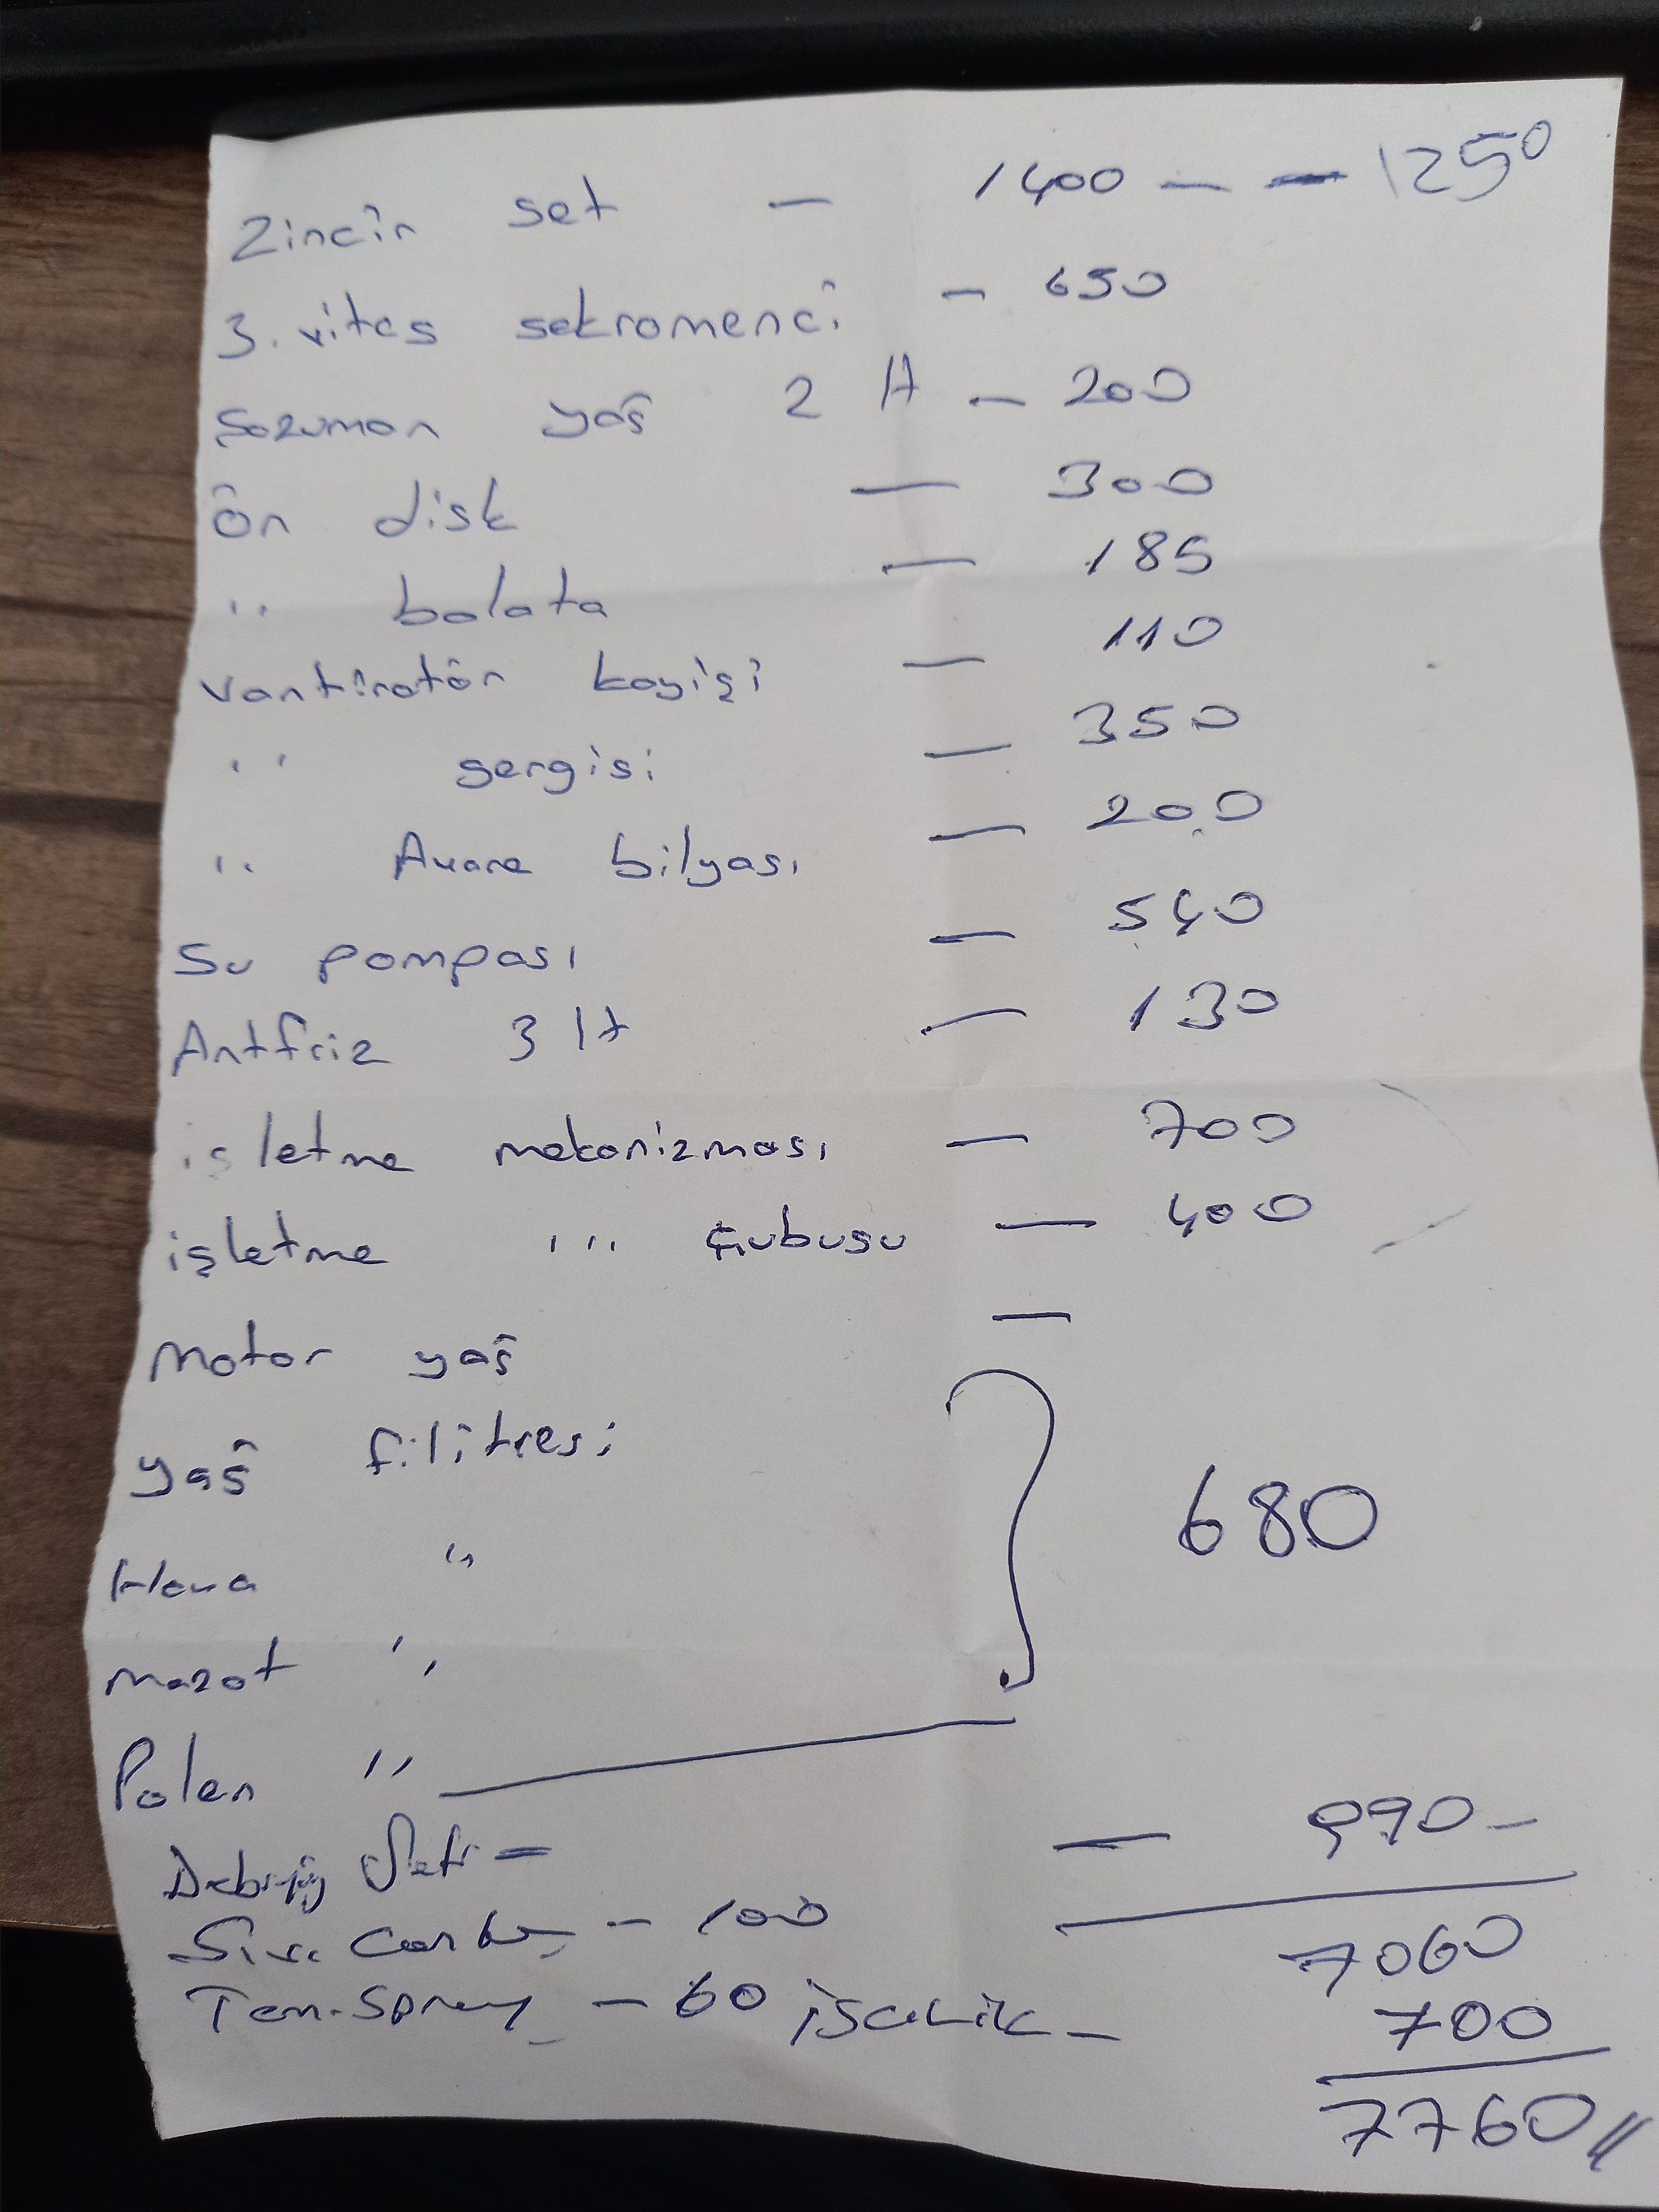 Zincir set — 1400 — — 1250
3. vites sekromenci — 650
Şozuman yağ 2 lt — 200
Ön disk — 300
" balata — 185
Vantiratör kayişi — 110
" gergisi — 350
" Avare bilyası — 200
Su pompası — 540
Antfriz 3 lt — 130
işletme mekanizması — 700
işletme " çubuğu — 400
Motor yağ —
yağ filitresi
Hava "
mazot " 680
Polen "
Debriyaj Seti = — 990 —
Sıvı Conta — 100 7060
Tem. Sprey — 60 işcilik — 700
7760 //